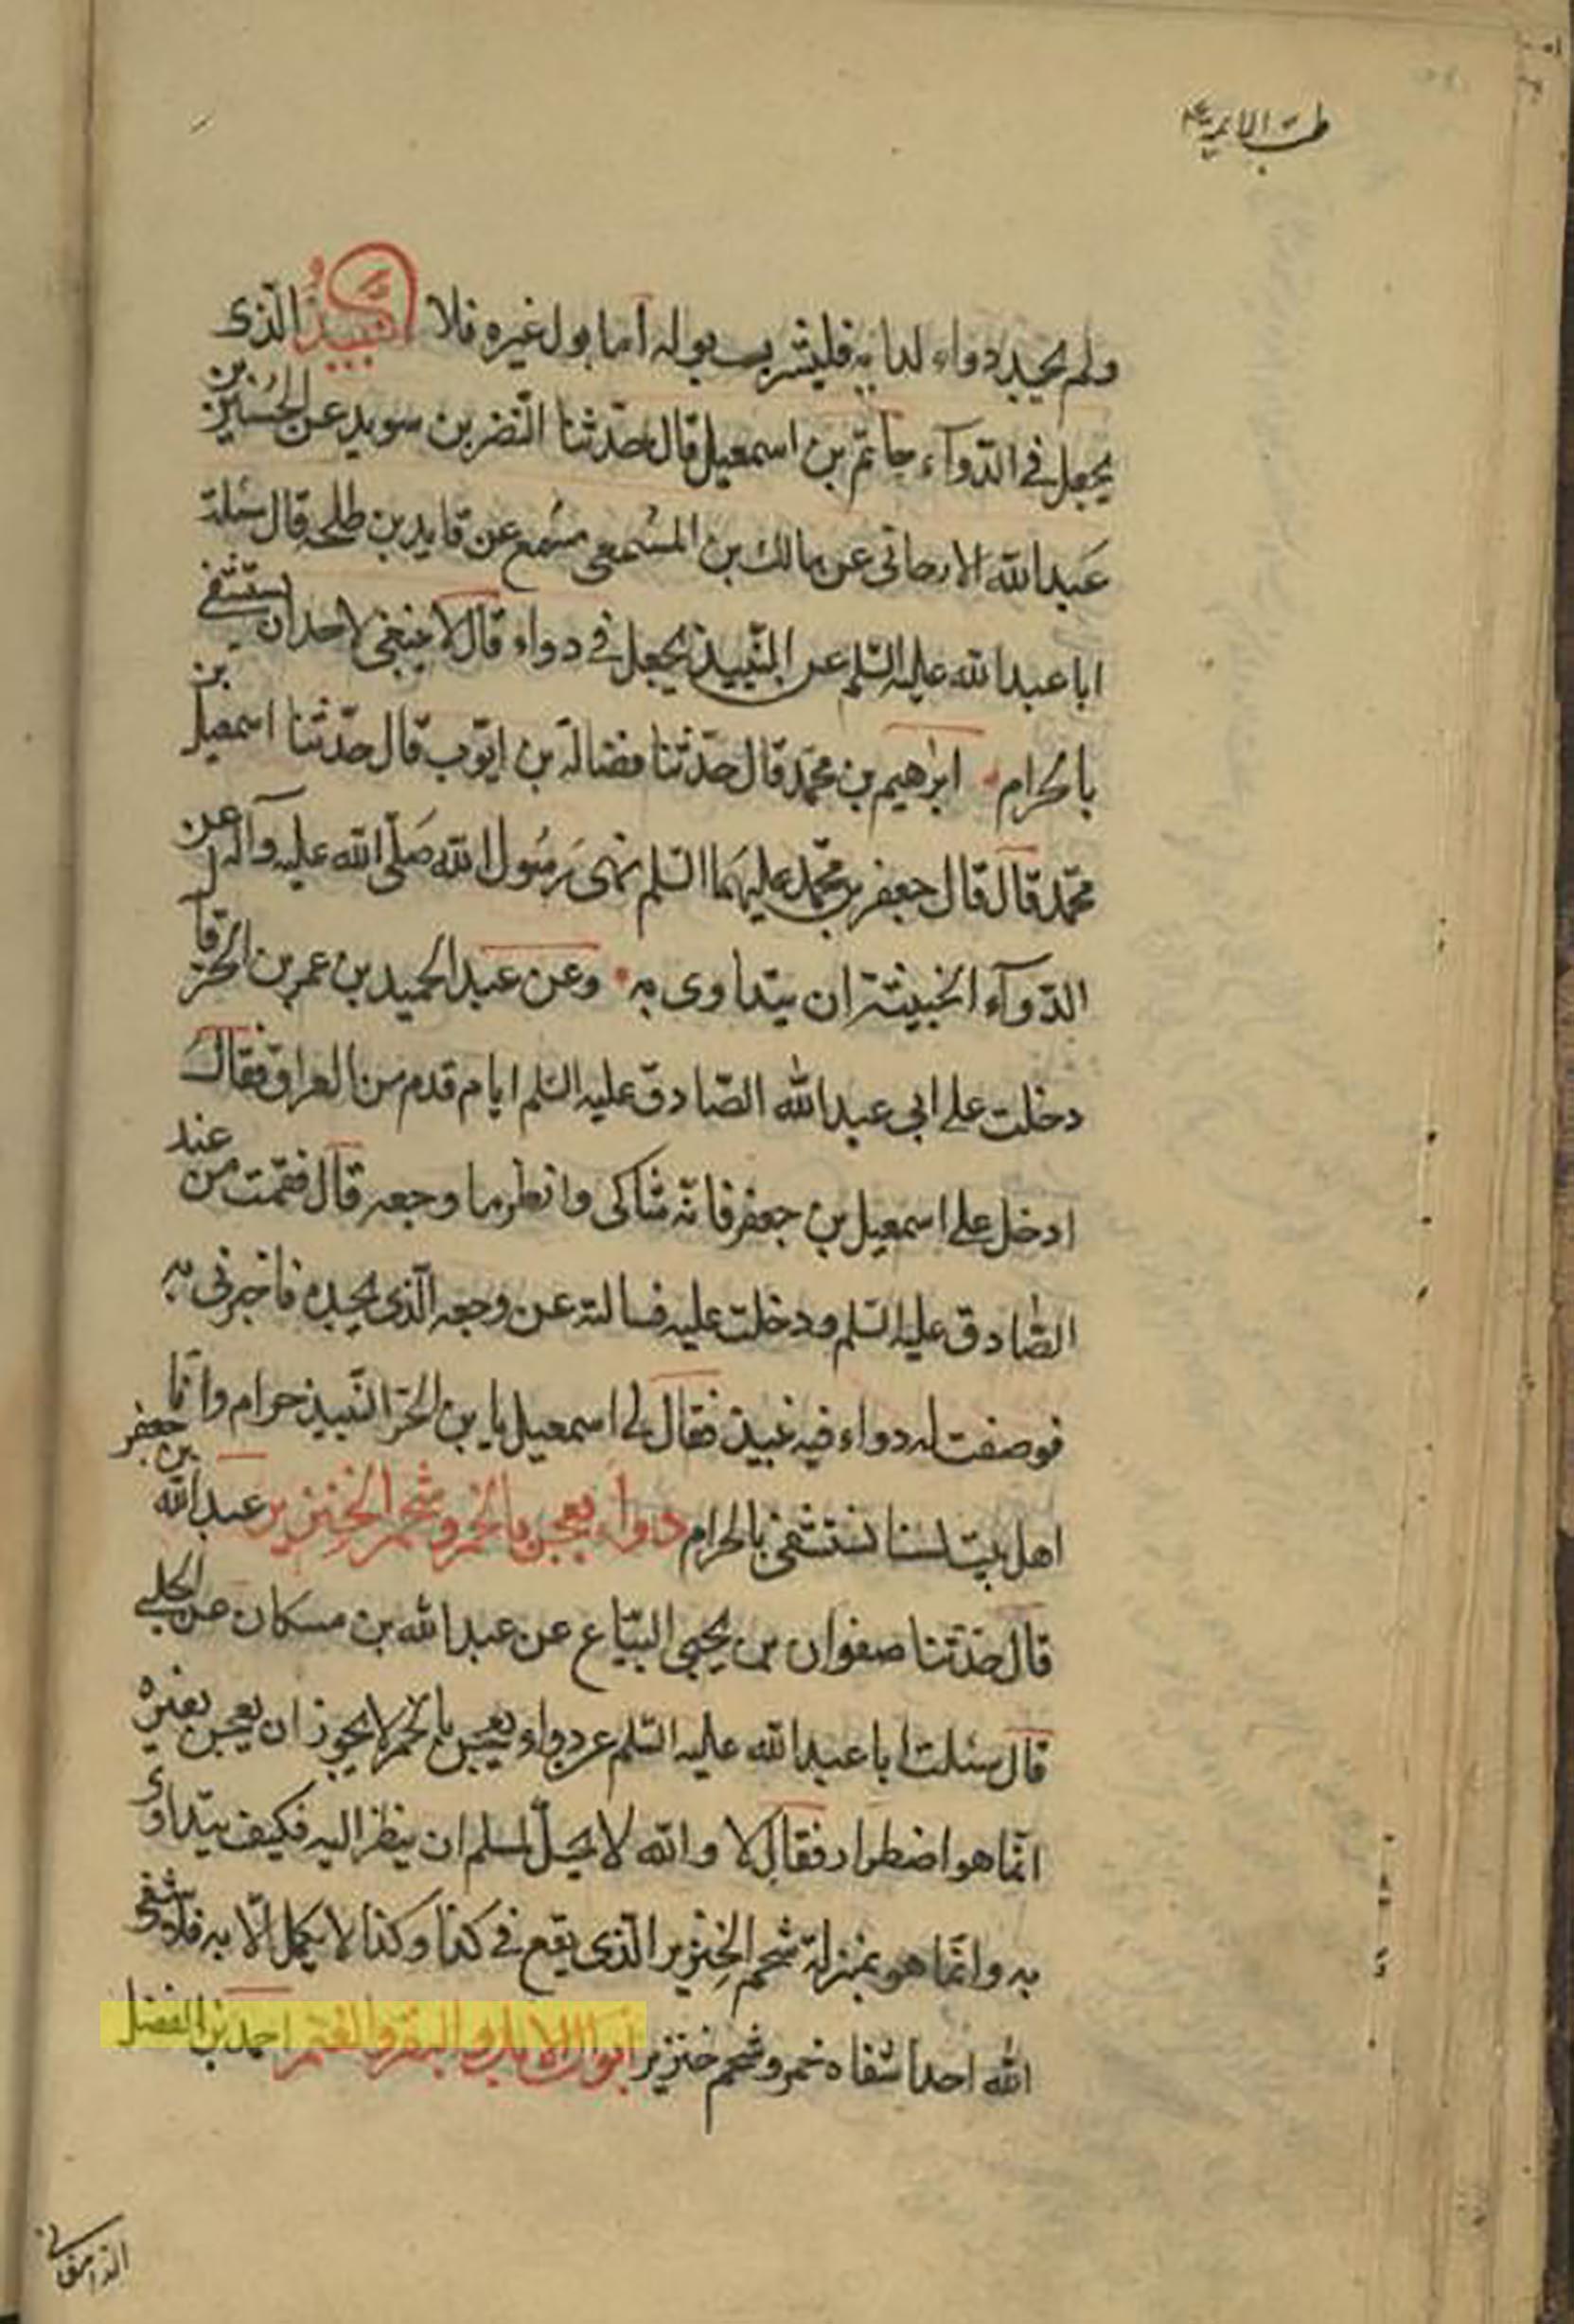 طب الائمة
ولم يجد دواء لدائه فليشرب بوله اما بول غيره فلا النبيذ الذى
يجعل فى الدوآء حاتم بن اسمعيل قال حدثنا النضر بن سويد عن الحسين بن
عبد الله الارجانى عن مالك بن المسمعى مسمع عن قايد بن طلحه قال سئلة
ابا عبد الله عليه السلم عن النبيذ يجعل فى دواء قال لا ينبغى لاحد ان يستشفى
بالحرام ابرهيم بن محمد قال حدثنا فضالة بن ايوب قال حدثنا اسمعيل بن
محمد قال قال جعفر بن محمد عليهما السلم نهى رسول الله صلى الله عليه وآله عن
الدوآء الخبيثة ان يتداوى به وعن عبد الحميد بن عمر بن الحر قال
دخلت على ابى عبد الله الصادق عليه السلم ايام قدم من العراق فقال
ادخل على اسمعيل بن جعفر فانه شاكى وانظر ما وجعه قال فقمت من عند
الصادق عليه السلم ودخلت عليه فسالته عن وجعه الذى يجده فاخبرنى به
فوصفت له دواء فيه نبيذ فقال لى اسمعيل يا بن الحر النبيذ حرام وانا
اهل بيت لسنا نستشفى بالحرام دواء يعجن بالخمر وشحم الخنزير عبد الله بن جعفر
قال حدثنا صفوان بن يحيى البياع عن عبد الله بن مسكان عن الحلبى
قال سئلت ابا عبد الله عليه السلم عن دواء يعجن بالخمر لا يجوز ان يعجن بغيره
انما هو اضطرار فقال لا والله لا يحل لمسلم ان ينظر اليه فكيف يتداوى
به وانما هو بمنزلة شحم الخنزير الذى يقع فى كذا وكذا لا يكمل الا به فلا شفى
الله احدا شفاه خمر وشحم خنزير ابوال الابل والبقر والغنم احمد بن الفضل
الدامغانى